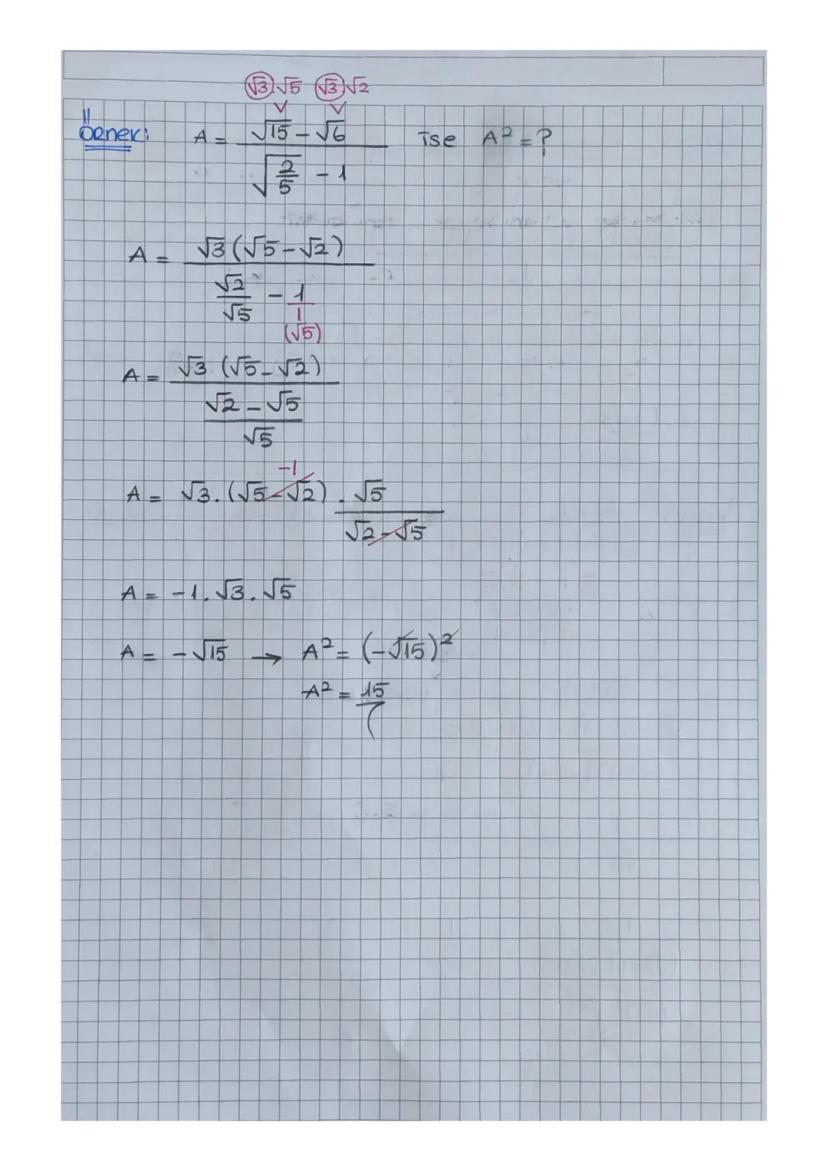 √3.√5 √3.√2
Örnek: A = (√15 - √6) / (√(2/5) - 1) ise A² = ?
A = √3(√5-√2) / (√2/√5 - 1/1)
(√5)
A = √3(√5-√2) / ((√2-√5)/√5)
-1
A = √3.(√5-√2) . √5/(√2-√5)
A = -1.√3.√5
A = -√15 → A² = (-√15)²
A² = 15